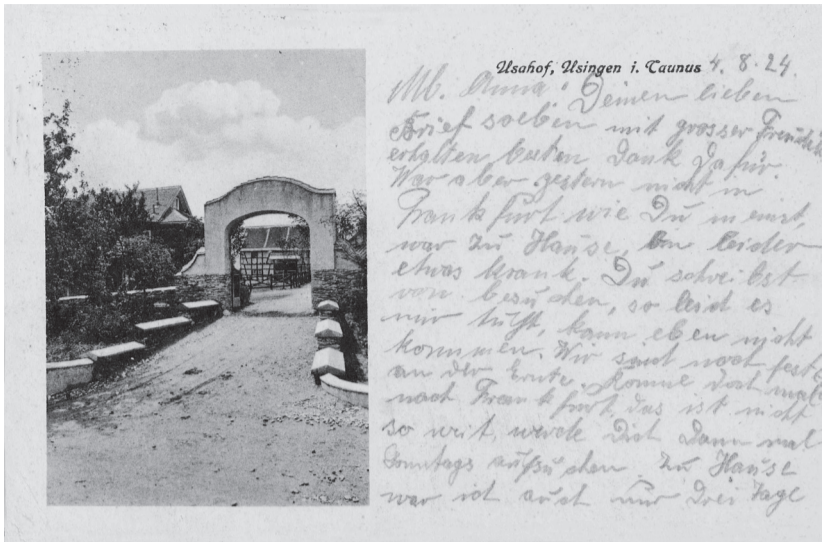 Usahof, Usingen i. Taunus 4.8.24.
Mb. Anna! Deinen lieben
Brief soeben mit grosser Freude
erhalten besten Dank dafür.
War aber gestern nicht in
Frankfurt wie Du meinst,
war zu Hause, bin leider
etwas krank. Du schreibst
von besuchen, so leid es
mir tuht, kann eben nicht
kommen. Wir sind noch fest
an der Ernte. Komme doch mal
nach Frankfurt, das ist nicht
so weit, werde Dich dann mal
Sonntags aufsuchen. Zu Hause
war ich auch nur drei Tage